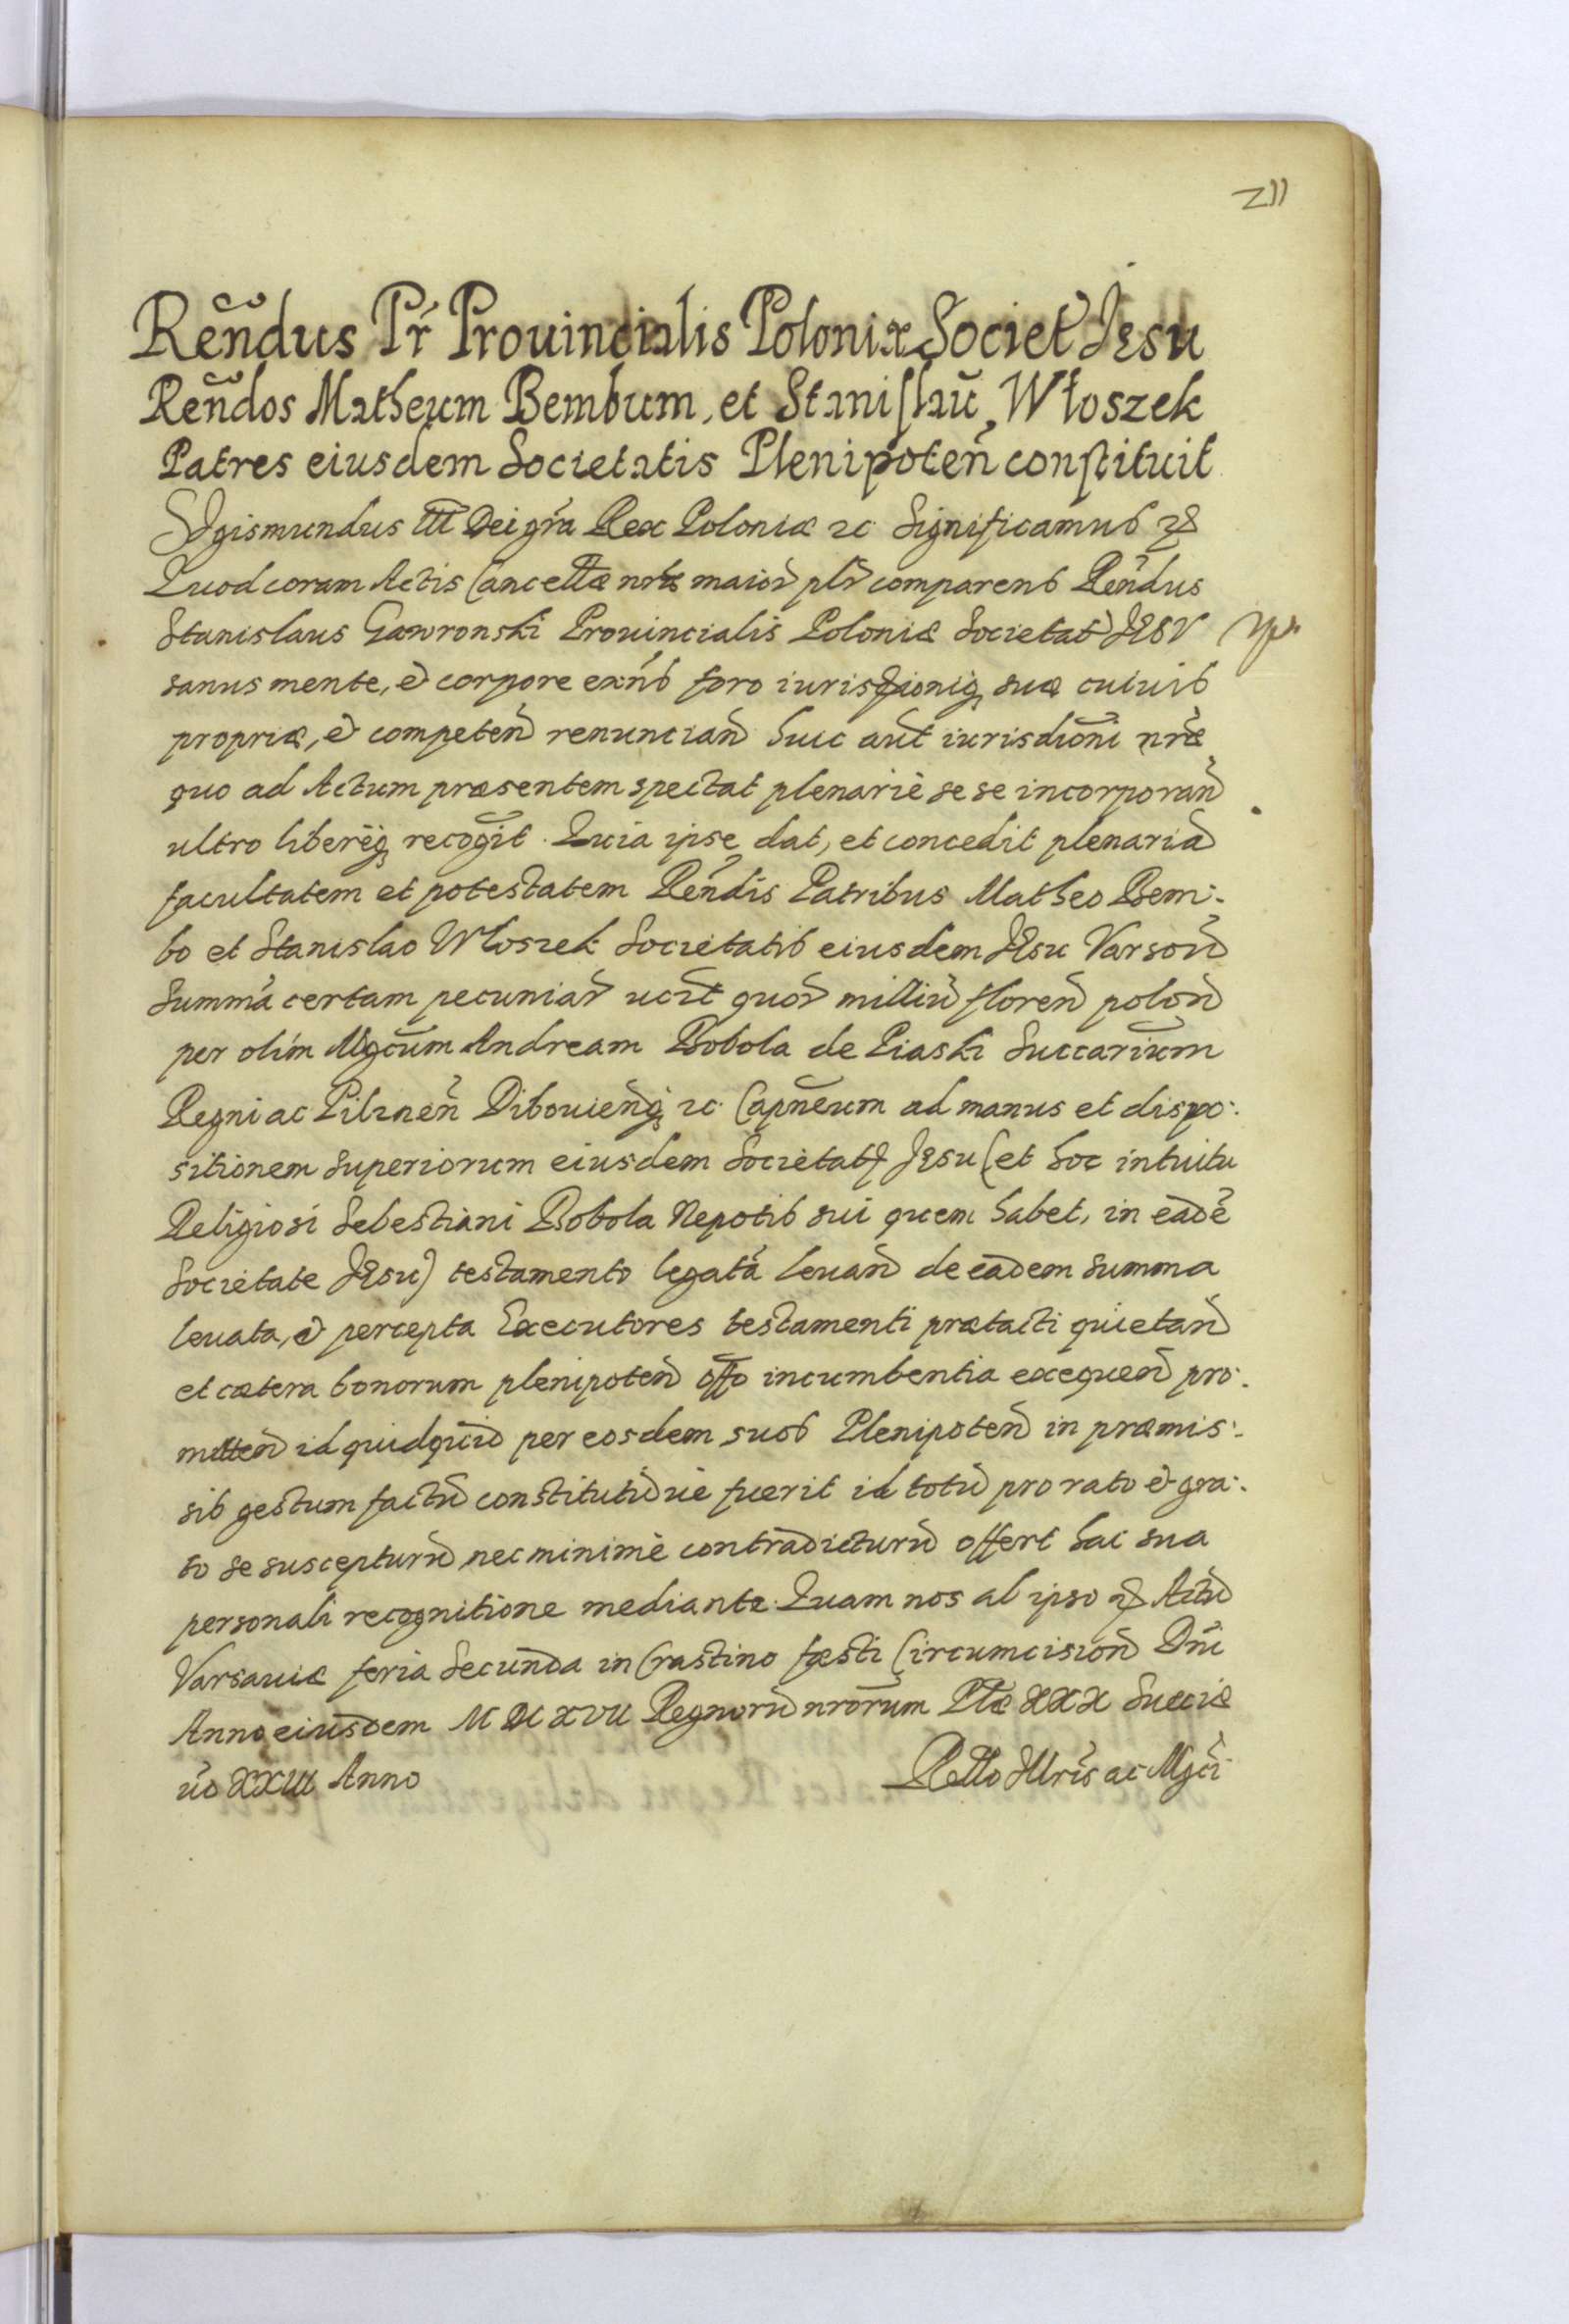 211
Rēndus Pr̃ Prouincialis Poloniæ Societ Jesu
Rēndos Matheum Bembum, et Stanislaū Włoszek
Patres eiusdem Societatis Plenipoteñ constituit
Sigismundus III Dei gr̃a Rex Poloniæ &c Significamus &
Quod coram Actis Cancellæ nr̃æ maior plr comparens Rēndus
Stanislaus Gawronski Prouincialis Poloniæ Societat JESV
sanus mente, et corpore exñs foro iurisdionique suæ cuiuis
propriæ, et competeñ renuncian huic aūt iurisdiōni nr̃æ
quo ad Actum præsentem spectat plenariè se se incorporañ
ultro liberèque recogit. Quia ipse dat, et concedit plenariã
facultatem et potestatem Rēndis Patribus Matheo Bem:
bo et Stanislao Włoszek Societatis eiusdem JEsu Varsoñ
Summã certam pecuniar uclt quor milliũ floreñ poloñ
per olim Mgcũm Andream Bobola de Piaski Succariũm
Regni ac Pilzneñ Dibouieñque &c. Capnẽum ad manus et dispo:
sitionem Superiorum eiusdem Societatis JEsu (et hoc intuitu
Religiosi Sebestiani Bobola Nepotis sui quem habet, in eadẽ
Societate JEsu) testamento legatã leuañ de eadem Summa
leuata, et percepta Executores testamenti prætacti quietañ
et cætera bonorum plenipoteñ offo incumbentia exequeñ pro:
mitteñ id quidquid per eosdem suos Plenipoteñ in præmis:
sis gestum factũ constitutũue fuerit id totũ pro rato et gra:
to se suscepturũ nec minimè contradicturũ offert hac sua
personali recognitione mediante. Quam nos ab ipso & Actũ
Varsauiæ feria Secunda in Crastino fæsti Circumcisioñ Dñi
Anno eiusdem MDCXVII Regnorũ nrorum Plæ XXX Sueciæ
uo XXIII Anno
Rello Illris ac Mgci